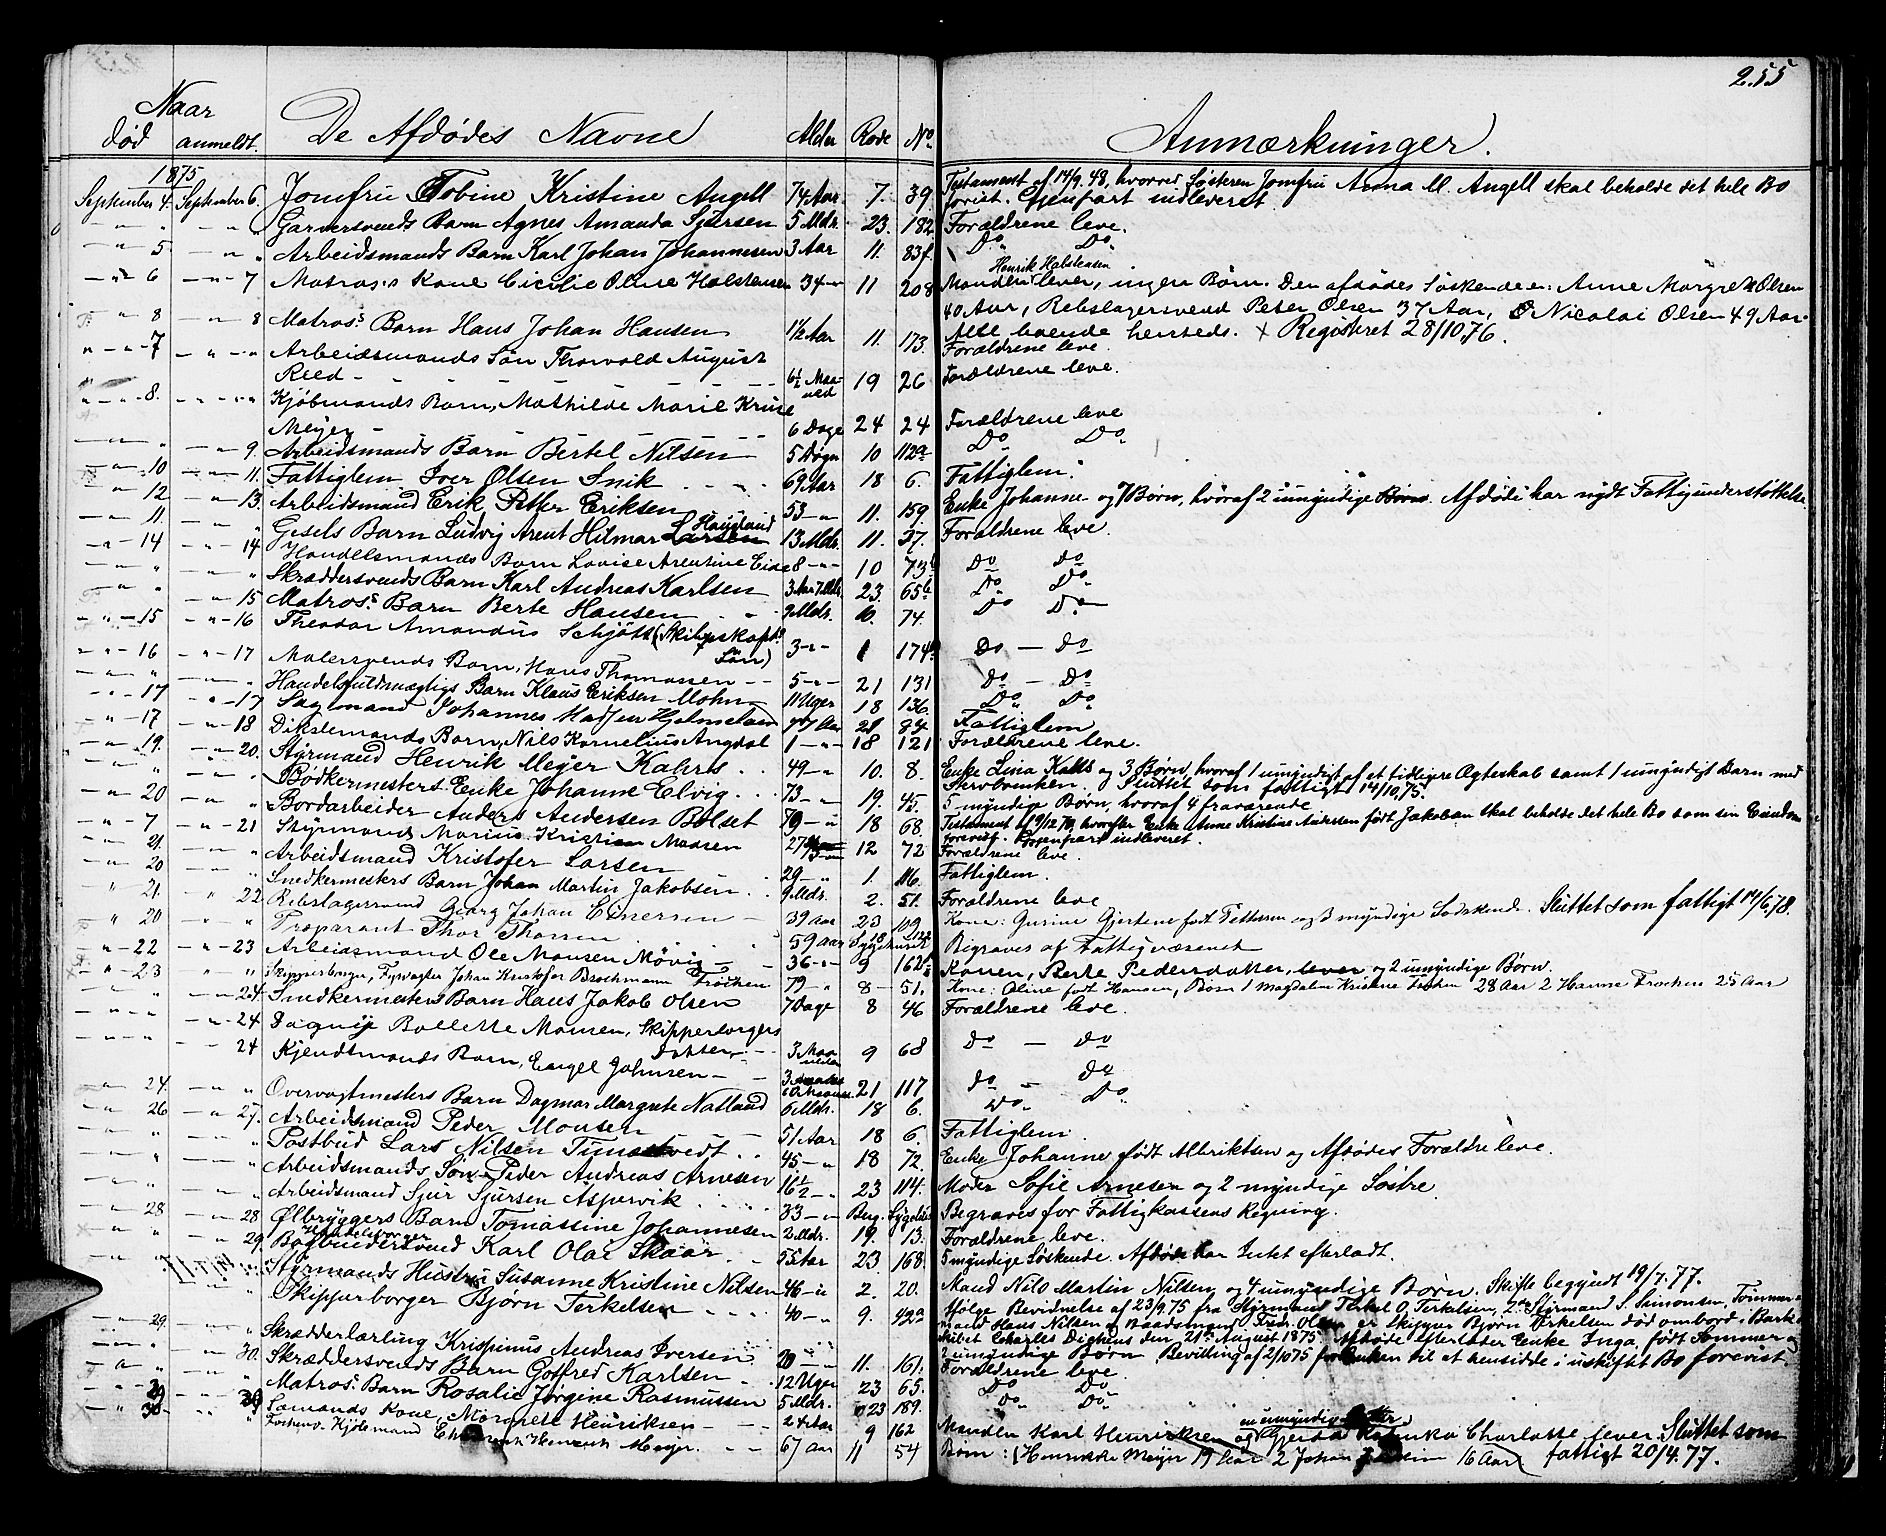 255
Naar
død anmeldt. De Afdødes Navne Alder Rode No Anmærkninger.
1875
September 4. September 6. Jomfru Tobine Kristine Angell 74 Aar 7. 39 Testament af 14/9. 48, hvorved Søsteren Jomfru Anna M. Angell skal beholde det hele Bo
forevist. Gjenpart indleveret.
" " Garversvends Barn Agnes Amanda Sjursen 5 Mdr. 23. 182 Forældrene leve.
5. " Arbeidsmands Barn Karl Johan Johannesen 3 Aar 11. 83f. Do Do
Henrik Halstensen
6 7 Matros's Kone Cicilie Oline Halstensen 34 11 208 Manden lever, ingen Børn. Den afdødes Søskende er: Anne Margrethe Olsen
40 Aar, Rebslagersvend Peter Olsen 37 Aar, Nicolai Olsen 49 Aar.
Alle boende hersteds. + Registreret 28/10.76.
8 8 Matros's Barn Hans Johan Hansen 1½ Aar 11. 173. Forældrene leve.
7 " Arbeidsmands Søn Thorvald August
Reed 6½ Maaned 19 26 Forældrene leve.
8. " Kjøbmands Barn, Mathilde Marie Kruse
Meyer 6 Dage 24 24 Forældrene leve
" 9. Arbeidsmands Barn Bertel Nilsen 5 Døgn 10 112a Do Do
10 11. Fattiglem Iver Olsen Snik 69 Aar 18 6. Fattiglem.
12 13. Arbeidsmand Erik Petter Eriksen 53 11. 159 Enke Johanne og 7 Børn, hvoraf 2 umyndige Børn. Afdøde har nydt Fattigunderstøttelse.
11. " Gjesels Barn Ludvig Arent Hilmar Larsen Haugland 13 Mdr. 11. 37. Forældrene leve.
14 14 Handelsmands Barn Lovise Arentine Eide 8 10 73b Do Do
" " Skræddersvends Barn Karl Andreas Karlsen 3 Aar 7 Mdr. 23. 65b Do Do
" 15 Matros's Barn Berte Hansen 9 Mdr. 10. 74. Do Do
15 16 Theodor Amandus Schjøtt (Skibskapt.
Søn) 3 1 174 Do Do
16 17 Malersvends Barn, Hans Thomassen 5 21 131 Do Do
" " Handelsfuldmægtigs Barn Klaus Eriksen Mohn 11 Uger 18 136. Do Do
17 17 Sagmand Johannes Hjelmeland 77 Aar 21 84. Fattiglem
17 18 Dikslemands Barn, Nils Kornelius Angdal 1 18 121 Forældrene leve.
19. 20. Styrmand Henrik Meyer Kahrs 49 10. 8. Enke Lina Kahrs og 3 Børn, hvoraf 1 umyndigt af et tidligere Ægteskab samt 1 umyndigt Barn med
Servbenken. Sluttet som fattigt 14/10.75.
" " Bødkermesters Enke Johanne Elvig 73 19. 45. 5 myndige Børn, hvoraf 4 fraværende
20 " Bordarbeider Anders Andersen Bolset 70 18 68. Testament af 9/12 70, hvorefter Enke Anne Kristine Andersen født Jakobsen skal beholde det hele Bo som sin Eiendom
forevist. Gjenpart indleveret.
7 21 Styrmand Marius Kristian Monsen 27 12 72 Forældrene leve.
21. " Arbeidsmand Kristofer Larsen 29 1. 116. Fattiglem.
20 " Snedkermesters Barn Johan Martin Jakobsen 9 Mdr. 2. 51. Forældrene leve
21. 22 Rebslagersvend Georg Johan Einersen 39 Aar 23 109 Kone: Gurine Gjertine født Pettersen og 3 myndige Sødskende. Sluttet som fattigt 14/6.78.
20 " Proparant Thor Thorsen 59 Aar Sygehuset Begraves af Fattigvæsenet
22 23 Arbeidsmand Ole Monsen Møvig 36 9 162 Konen, Berte Pedersdatter, lever og 2 umyndige Børn.
23 " Skipperborger, Fyrvogter Johan Kristofer Brochmann Frochen 79 8 51. Kone: Oline født Hansen, Børn 1 Magdalene Kristine Frochen 28 Aar 2 Hanne Frochen 25 Aar
" 24. Snedkermesters Barn Hans Jakob Olsen 7 Dage 8 46 Forældrene leve.
" 24 Dagny Bollette Monsen, Skipperborgers
Datter 3 Maaneder 9 68 Do Do
" 24 Kjendtmands Barn, Engel Johnsen 21 117 Do Do
24. " Overvagtmesters Barn Dagmar Margrete Natland 6 Mdr. 18 6. Do Do
26 27. Arbeidsmand Peder Monsen 51 Aar 18 6. Fattiglem.
" " Postbud Lars Nilsen Timestvedt 45 18 72. Enke Johanne født Albriktsen og Afdødes Forældre leve.
" " Arbeidsmands Søn Peder Andreas Arnesen 16½ 23 114. Moder Sofie Arnesen og 2 myndige Søstre.
" " Arbeidsmand Sjur Sjursen Aspervik 33 Berg. Sygehus Begraves for Fattigkassens Regning.
28 28 Ølbryggers Barn Tomassine Johannesen 2 Mdr. 19. 13. Forældrene leve.
Handelsborger
" 29. Bogbindersvend Karl Olai Skaar 55 Aar 23 168 5 myndige Søskende. Afdøde har Intet efterladt.
" Styrmands Hustru Susanne Kristine Nilsen 46 2. 20. Mand Nils Martin Nilsen og 4 umyndige Børn. Skifte begyndt 19/7.77.
" Skipperborger Bjørn Terkelsen 40 9. 492a Ifølge Bevidnelse af 23/9.75 fra Styrmand Terkel O. Terkelsen, 2den Styrmand S. Simonsen, Tømmer-
mand Hans Nilsen og Baadsmand Olsen er Skipper Bjørn Terkelsen død ombord i Bark-
skibet Charles Dickens den 21de August 1875. Afdøde efterlader Enke Inga født Sommer og
2 umyndige Børn. Bevilling af 2/10 75 for Enken til at hensidde i uskiftet Bo forevist.
29. " Skrædderlærling Krispinus Andreas Iversen 20 11. 161. Forældrene leve.
" 30. Skræddersvends Barn Gotfred Karlsen 12 Uger 23 65. Do Do
29 30 Matros's Barn Rosalie Jørgine Rasmussen 5 Mdr. 23 189. Do Do
30 " Sømands Kone, Margrete Henriksen 24 Aar 9 162 Manden Karl Henriksen og en umyndig Datter Gjerda Katinka Charlotte lever. Sluttet som
fattigt 20/4.77.
Kjølemand Henrik Meyer 67 Aar 11 54 Børn: (Henrikke Meyer 19 Aar 2 Johan 16 Aar)